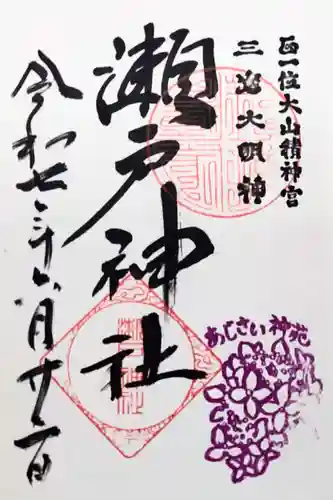 正一位大山積神宮
三島大明神
瀬戸神社
令和七年六月廿一日
あじさい神苑